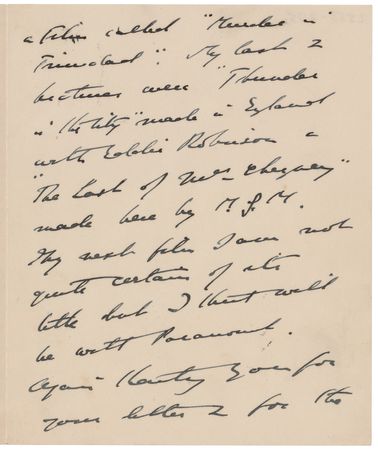 a film called "Murder in
Trinidad". My last 2
pictures were "Thunder
in the City" made in England
with Eddie Robinson &
"The Last of Mrs Cheyney"
made here by M.G.M.
My next film I am not
quite certain of its
title but I think will
be with Paramount.
Again thanking you for
your letter & for the